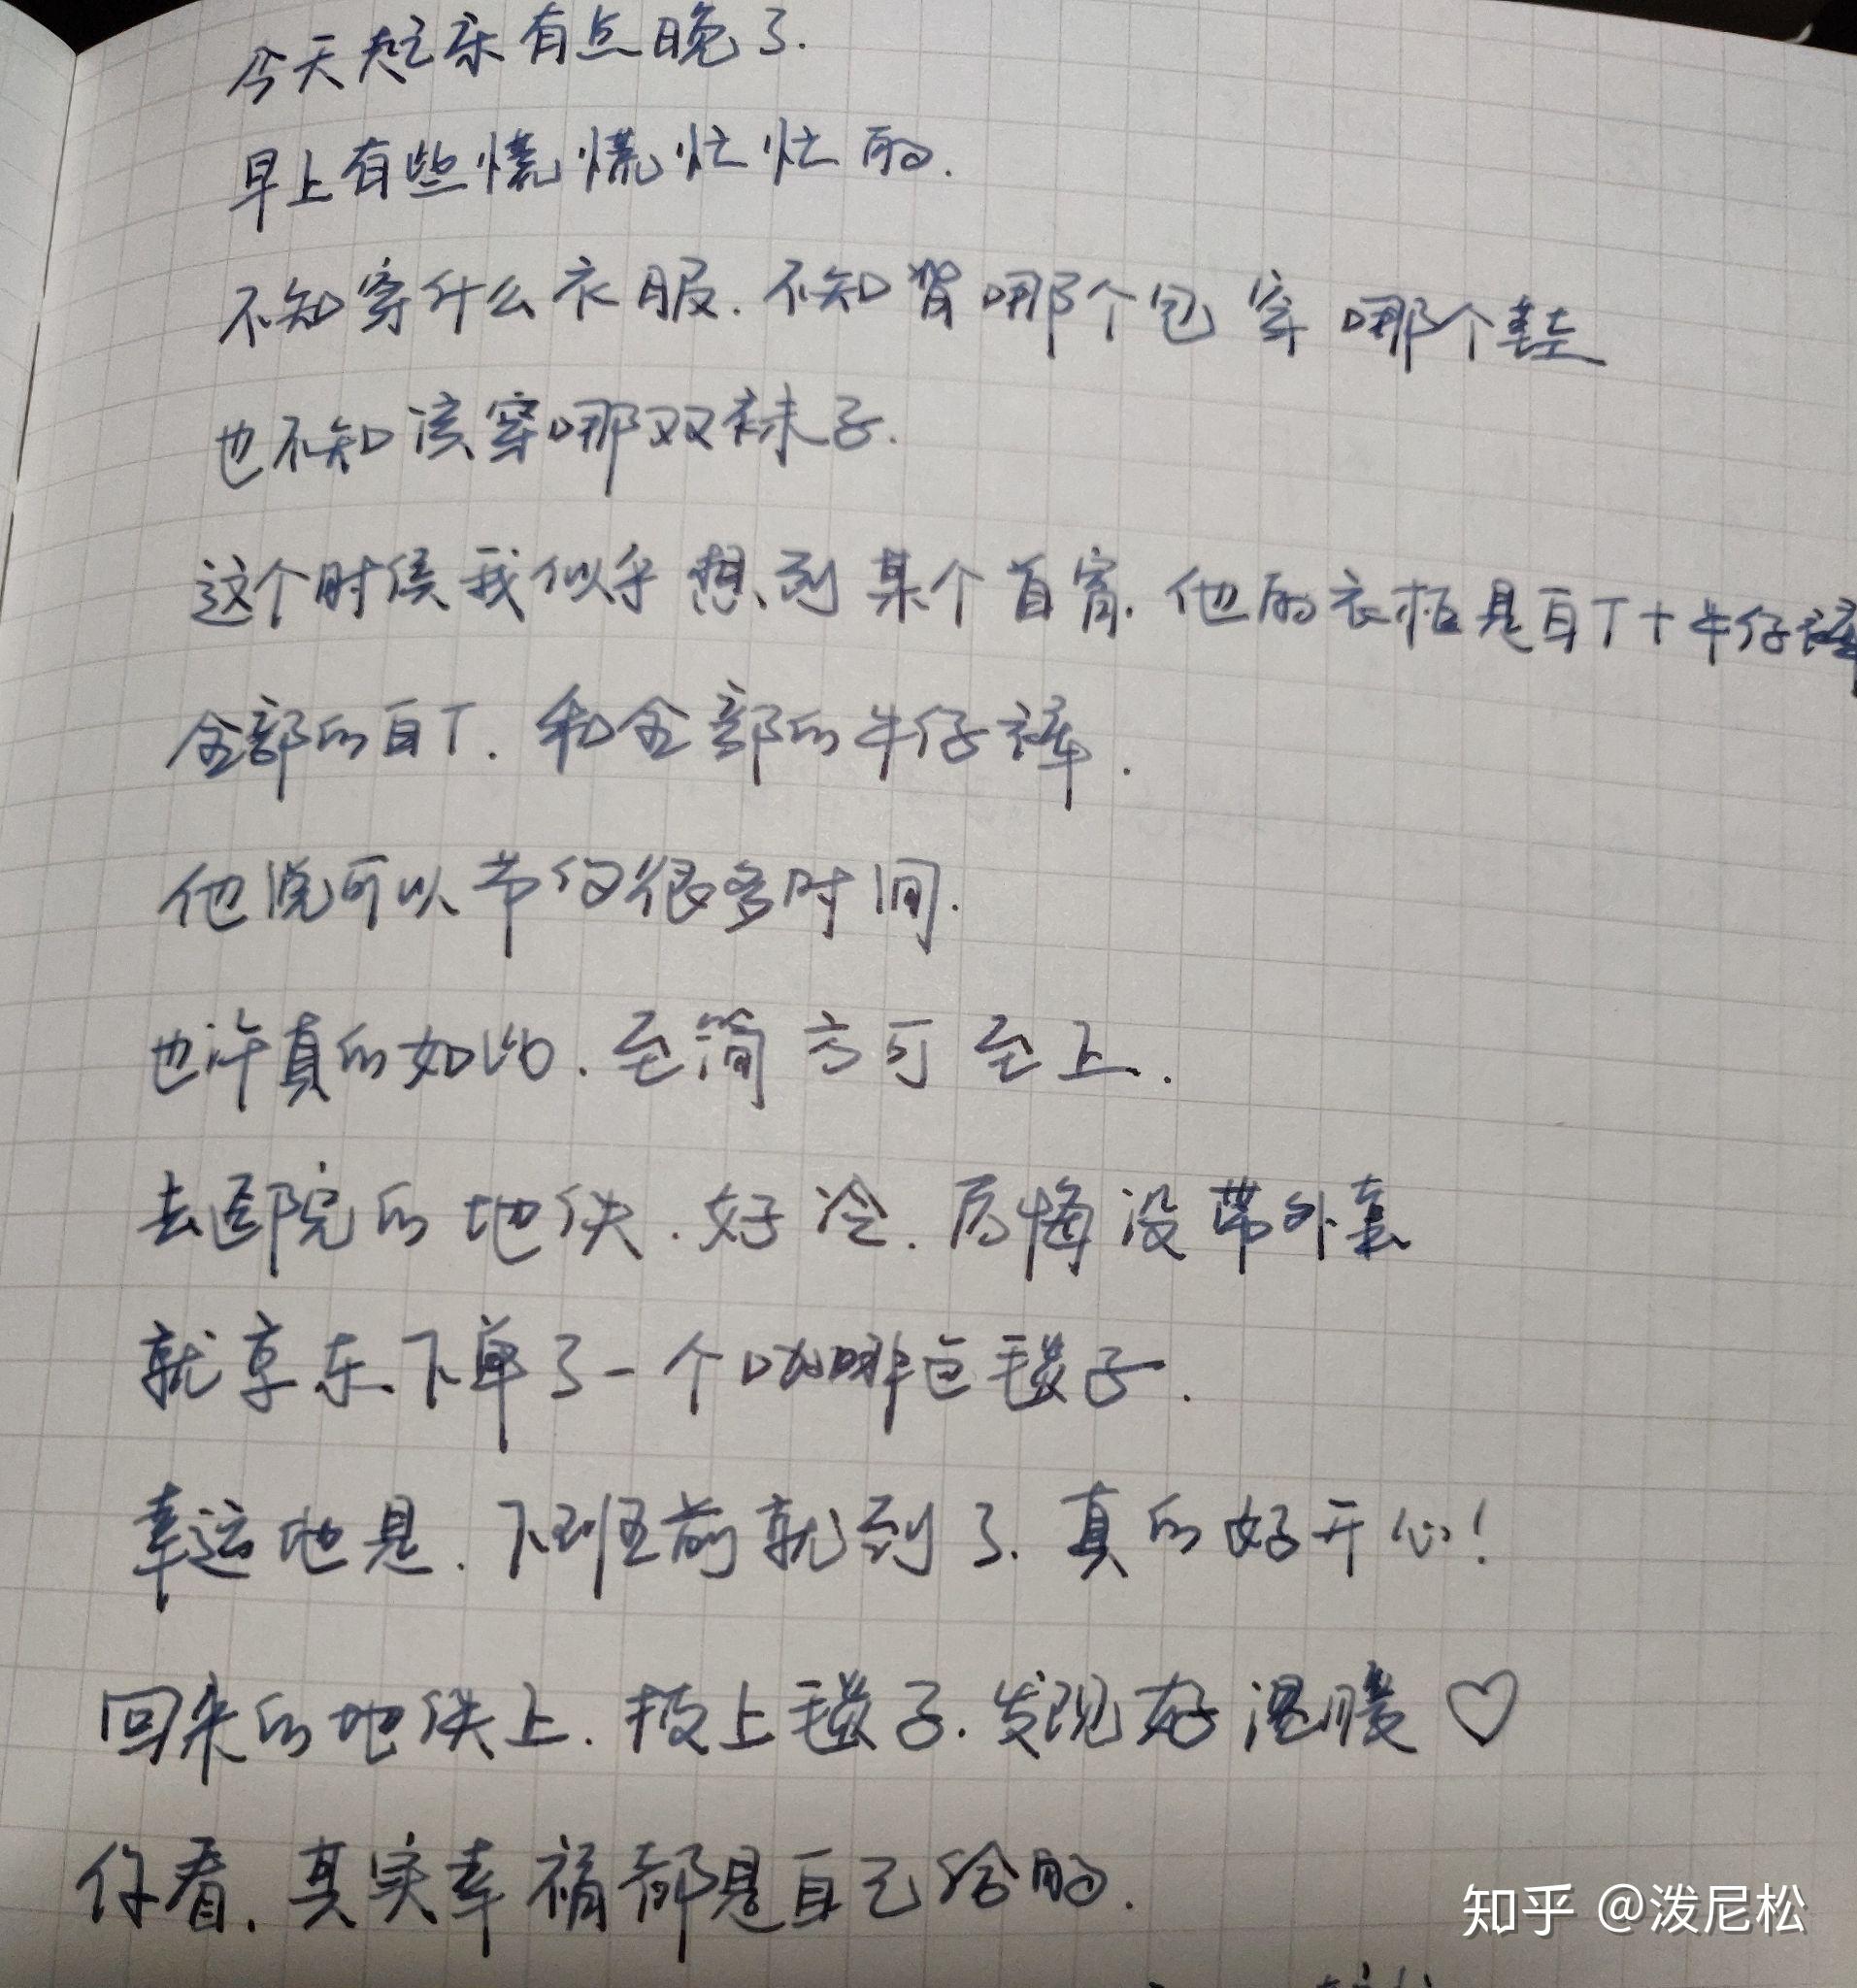 今天起床有点晚了.
早上有些慌慌忙忙的.
不知穿什么衣服.不知背哪个包穿哪个鞋
也不知该穿哪双袜子.
这个时候我似乎想到某个首富.他的衣柜是白T+牛仔裤
全部的白T.和全部的牛仔裤.
他说可以节约很多时间.
也许真的如此.至简方可至上.
去医院的地铁.好冷.后悔没带外套
就京东下单了一个咖啡色毯子.
幸运地是.下班前就到了.真的好开心!
回来的地铁上.披上毯子.发现好温暖♡
你看.其实幸福都是自己给的.
知乎 @泼尼松